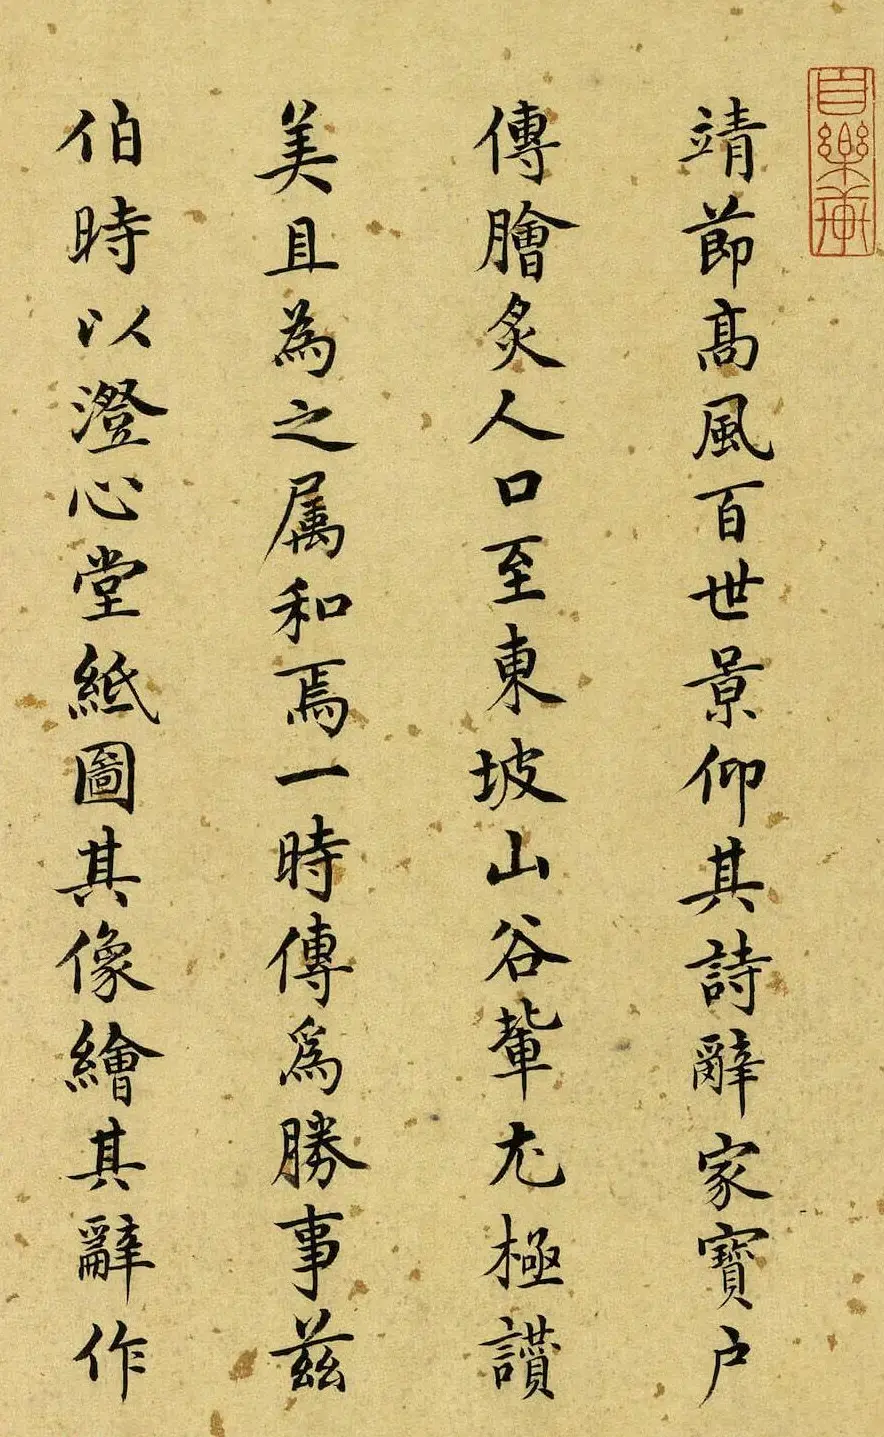 靖節髙風百世景仰其詩辭家寶户
傳膾炙人口至東坡山谷輩尤極讚
美且為之属和焉一時傳爲勝事茲
伯時以澄心堂紙圖其像繪其辭作